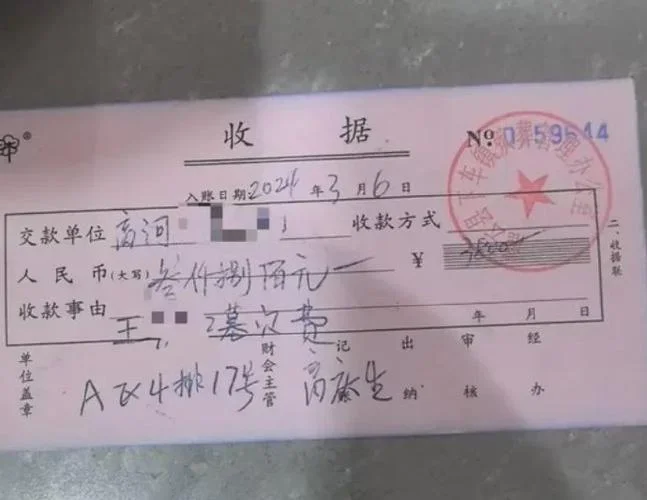 收据
№ 0159644
入账日期 2024 年 3 月 6 日
交款单位 高河 收款方式
人民币(大写) 叁仟捌佰元 ¥ 3800
收款事由 王 墓穴费 年 月 日
单位盖章 财会主管 记 出纳 审核 经办
A区4排17号
二、收据联
下车镇殡葬管理办公室